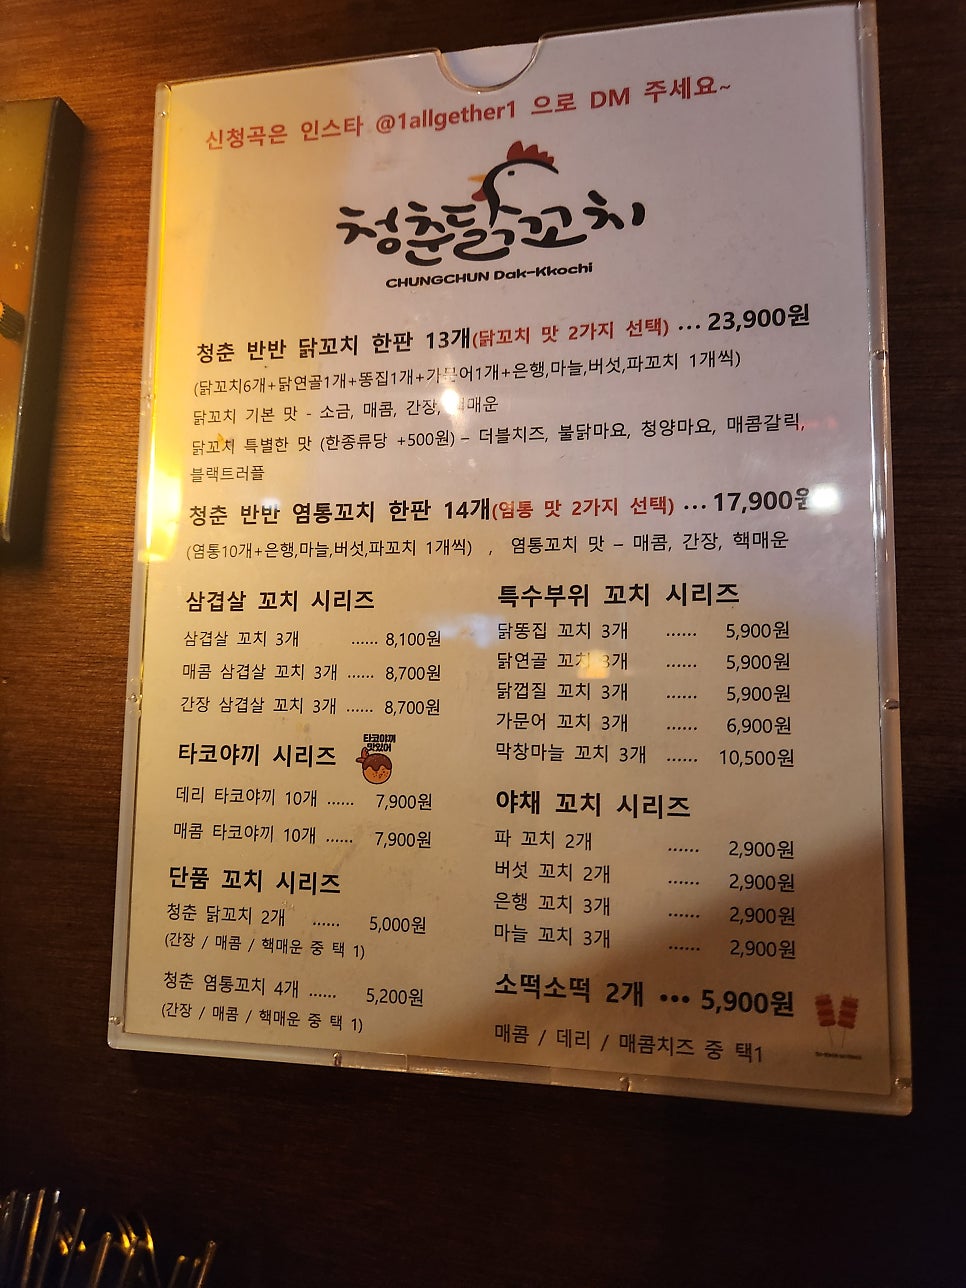 신청곡은 인스타 @1allgether1 으로 DM 주세요~
청춘닭꼬치
CHUNGCHUN Dak-Kkochi
청춘 반반 닭꼬치 한판 13개(닭꼬치 맛 2가지 선택) ··· 23,900원
(닭꼬치6개+닭연골1개+똥집1개+가문어1개+은행,마늘,버섯,파꼬치 1개씩)
닭꼬치 기본 맛 - 소금, 매콤, 간장, 핵매운
닭꼬치 특별한 맛 (한종류당 +500원) – 더블치즈, 불닭마요, 청양마요, 매콤갈릭,
블랙트러플
청춘 반반 염통꼬치 한판 14개(염통 맛 2가지 선택) ··· 17,900원
(염통10개+은행,마늘,버섯,파꼬치 1개씩) , 염통꼬치 맛 – 매콤, 간장, 핵매운
삼겹살 꼬치 시리즈
삼겹살 꼬치 3개 ...... 8,100원
매콤 삼겹살 꼬치 3개 ...... 8,700원
간장 삼겹살 꼬치 3개 ...... 8,700원
타코야끼 시리즈
타코야끼
맛있어
데리 타코야끼 10개 ...... 7,900원
매콤 타코야끼 10개 ...... 7,900원
단품 꼬치 시리즈
청춘 닭꼬치 2개 ...... 5,000원
(간장 / 매콤 / 핵매운 중 택 1)
청춘 염통꼬치 4개 ...... 5,200원
(간장 / 매콤 / 핵매운 중 택 1)
특수부위 꼬치 시리즈
닭똥집 꼬치 3개 ...... 5,900원
닭연골 꼬치 3개 ...... 5,900원
닭껍질 꼬치 3개 ...... 5,900원
가문어 꼬치 3개 ...... 6,900원
막창마늘 꼬치 3개 ...... 10,500원
야채 꼬치 시리즈
파 꼬치 2개 ...... 2,900원
버섯 꼬치 2개 ...... 2,900원
은행 꼬치 3개 ...... 2,900원
마늘 꼬치 3개 ...... 2,900원
소떡소떡 2개 ··· 5,900원
매콤 / 데리 / 매콤치즈 중 택1